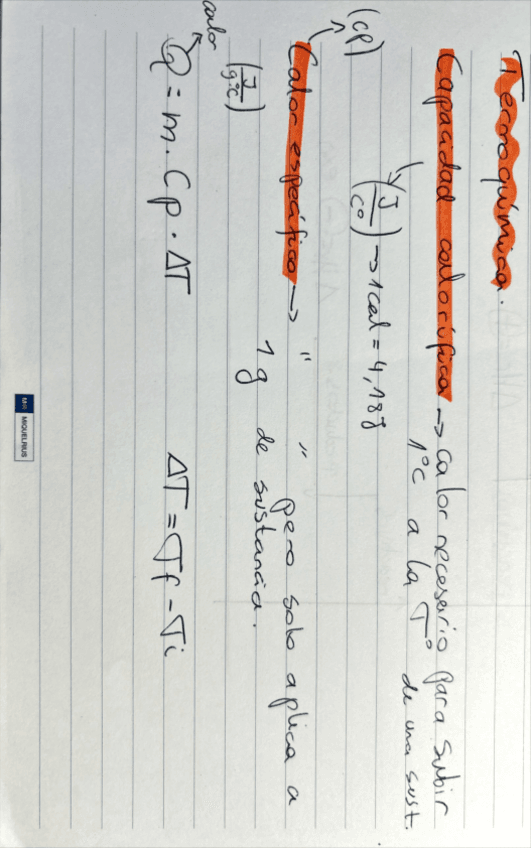 Termoquímica.
Capacidad calorífica → calor necesario para subir
1°C a la T° de una sust.
(J/C°) → 1cal = 4,18J
(Cp)
Calor específico → " " pero solo aplica a
1g de sustancia.
(J/g·°C)
calor
Q = m. Cp. ΔT ΔT = Tf - Ti
MR MIQUELRIUS